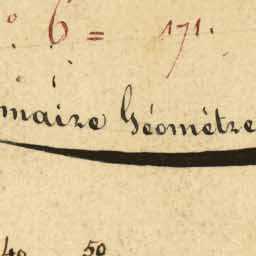 ° 6 = 171.
maire Géomètre
40 50